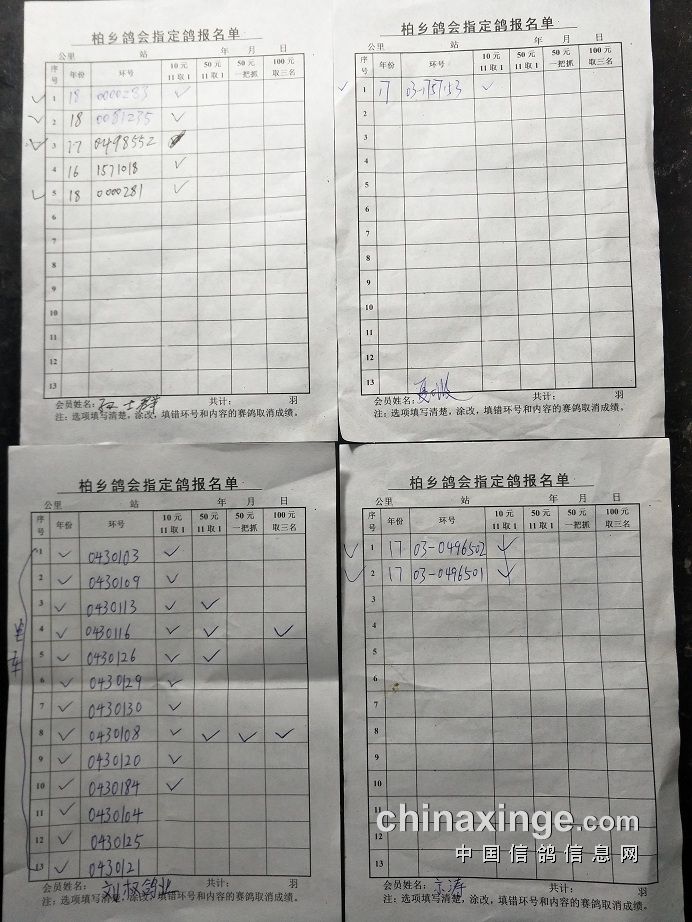 柏乡鸽会指定鸽报名单
公里 站 年 月 日
序号 年份 环号 10元 11取1 50元 11取1 50元 一把抓 100元 取三名
✓ 1 18 0000283 ✓
✓ 2 18 0081235 ✓
✓ 3 17 0498552
4 16 1571018 ✓
✓ 5 18 0000281 ✓
6
7
8
9
10
11
12
13
会员姓名: 共计: 羽
注: 选项填写清楚, 涂改, 填错环号和内容的赛鸽取消成绩。
柏乡鸽会指定鸽报名单
公里 站 年 月 日
序号 年份 环号 10元 11取1 50元 11取1 50元 一把抓 100元 取三名
✓ 1 17 03-1757153 ✓
2
3
4
5
6
7
8
9
10
11
12
13
会员姓名: 共计: 羽
注: 选项填写清楚, 涂改, 填错环号和内容的赛鸽取消成绩。
柏乡鸽会指定鸽报名单
公里 站 年 月 日
序号 年份 环号 10元 11取1 50元 11取1 50元 一把抓 100元 取三名
1 ✓ 0430103 ✓
2 ✓ 0430109 ✓
3 ✓ 0430113 ✓ ✓
4 ✓ 0430116 ✓ ✓ ✓
5 ✓ 0430126 ✓ ✓
6 ✓ 0430129 ✓
7 ✓ 0430130 ✓
8 ✓ 0430108 ✓ ✓ ✓
9 ✓ 0430120 ✓
10 ✓ 0430184 ✓
11 ✓ 0430104
12 ✓ 0430125
13 ✓ 0430121
会员姓名: 刘权鸽业 共计: 羽
注: 选项填写清楚, 涂改, 填错环号和内容的赛鸽取消成绩。
柏乡鸽会指定鸽报名单
公里 站 年 月 日
序号 年份 环号 10元 11取1 50元 11取1 50元 一把抓 100元 取三名
✓ 1 17 03-0496502 ✓
✓ 2 17 03-0496501 ✓
3
4
5
6
7
8
9
10
11
12
13
会员姓名: 共计: 羽
注: 选项填写清楚, 涂改, 填错环号和内容的赛鸽取消成绩。
chinaxinge.com
中国信鸽信息网